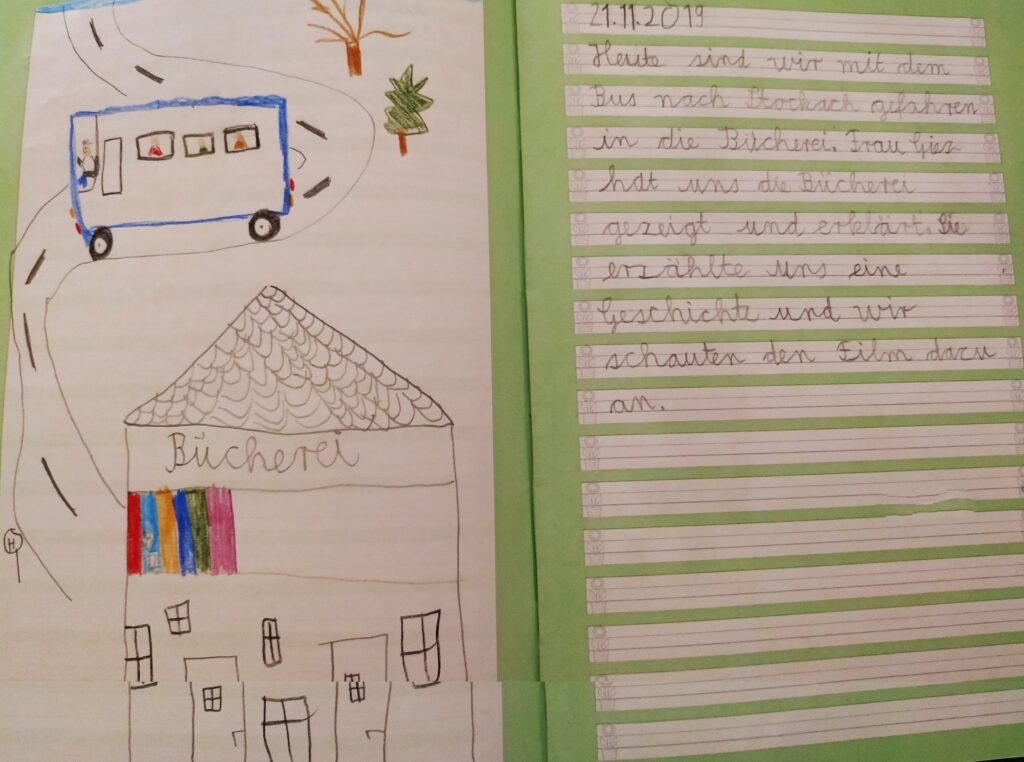 Bücherei
H
21.11.2019
Heute sind wir mit dem
Bus nach Stockach gefahren
in die Bücherei. Frau
hat uns die Bücherei
gezeigt und erklärt. Sie
erzählte uns eine
Geschichte und wir
schauten den Film dazu
an.